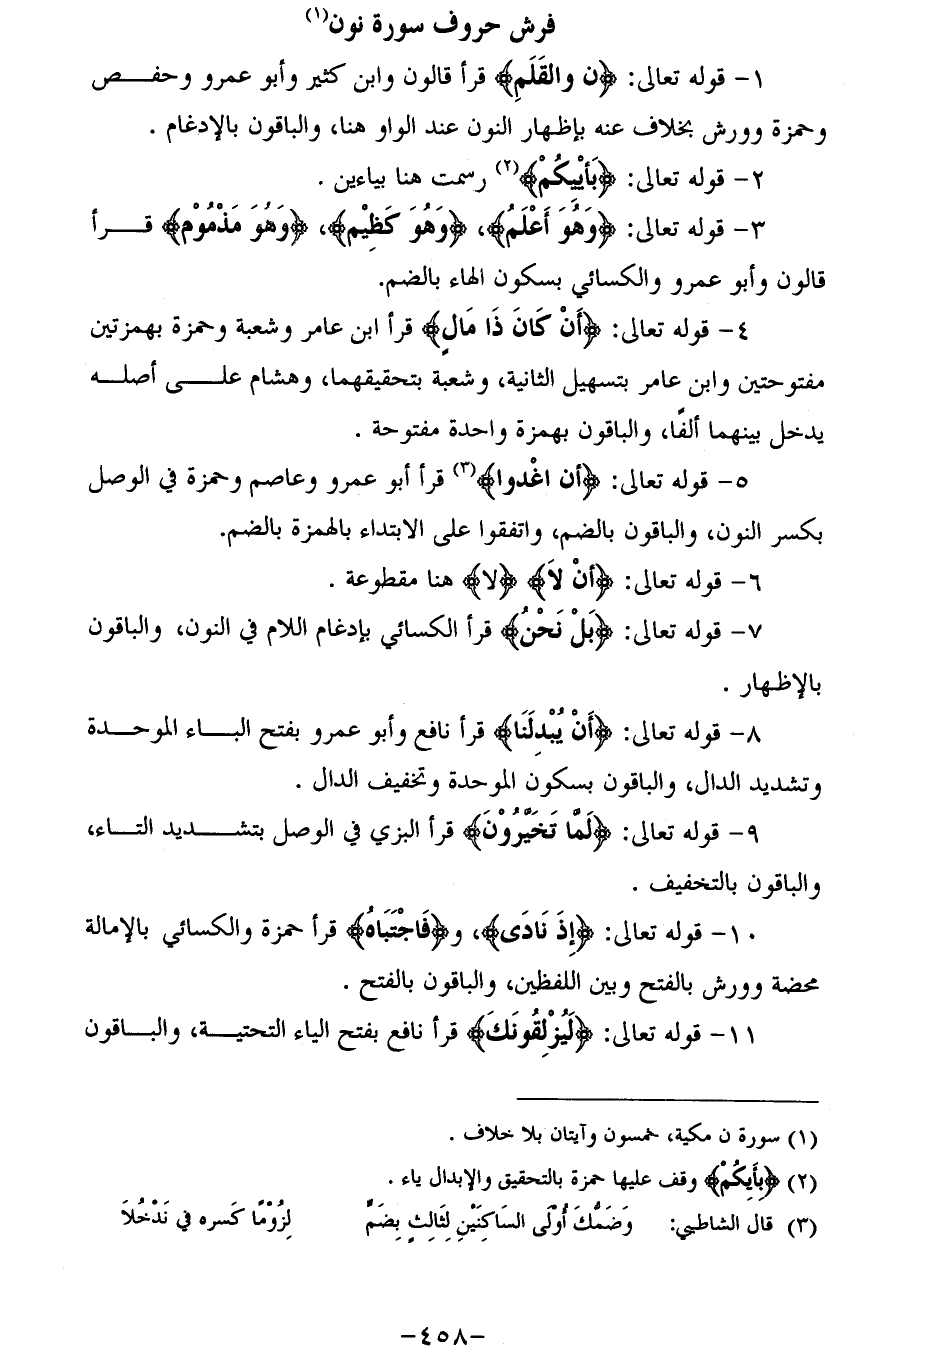 فرش حروف سورة نون(١)
١- قوله تعالى: ﴿ن والقَلَمِ﴾ قرأ قالون وابن كثير وأبو عمرو وحفـــص
وحمزة وورش بخلاف عنه بإظهار النون عند الواو هنا، والباقون بالإدغام .
٢- قوله تعالى: ﴿بَأيِيكُمْ﴾(٢) رسمت هنا بياءين .
٣- قوله تعالى: ﴿وَهُوَ أَعْلَمُ﴾، ﴿وَهُوَ كَظِيْم﴾، ﴿وَهُوَ مَذْمُوْم﴾ قـــرأ
قالون وأبو عمرو والكسائي بسكون الهاء بالضم.
٤- قوله تعالى: ﴿أَنْ كَانَ ذَا مَالٍ﴾ قرأ ابن عامر وشعبة وحمزة بهمزتين
مفتوحتين وابن عامر بتسهيل الثانية، وشعبة بتحقيقهما، وهشام علـــى أصلـه
يدخل بينهما ألفًا، والباقون بهمزة واحدة مفتوحة .
٥- قوله تعالى: ﴿أن اغْدوا﴾(٣) قرأ أبو عمرو وعاصم وحمزة في الوصل
بكسر النون، والباقون بالضم، واتفقوا على الابتداء بالهمزة بالضم.
٦- قوله تعالى: ﴿أنْ لاَ﴾ ﴿لا﴾ هنا مقطوعة .
٧- قوله تعالى: ﴿بَلْ نَحْنُ﴾ قرأ الكسائي بإدغام اللام في النون، والباقون
بالإظهار .
٨- قوله تعالى: ﴿أَنْ يُبْدِلَنَا﴾ قرأ نافع وأبو عمرو بفتح البـــاء الموحـــدة
وتشديد الدال، والباقون بسكون الموحدة وتخفيف الدال .
٩- قوله تعالى: ﴿لَمَّا تَخَيَّرُوْنَ﴾ قرأ البزي في الوصل بتشـــديد التـــاء،
والباقون بالتخفيف .
١٠- قوله تعالى: ﴿إِذ نَادَى﴾، و﴿فَاجْتَبَاهُ﴾ قرأ حمزة والكسائي بالإمالة
محضة وورش بالفتح وبين اللفظين، والباقون بالفتح .
١١- قوله تعالى: ﴿لَيُزْلِقُونَكَ﴾ قرأ نافع بفتح الياء التحتيـــة، والبـــاقون
(١) سورة ن مكية، خمسون وآيتان بلا خلاف .
(٢) ﴿بِأَيِكُمْ﴾ وقف عليها حمزة بالتحقيق والإبدال ياء .
(٣) قال الشاطبي: وَضَمُّكَ أُوْلَى السَاكِنَيْنِ لِثَالِثٍ بِضَمٍّ لِزُوْمًا كَسره في نَدْخُلاَ
-٤٥٨-